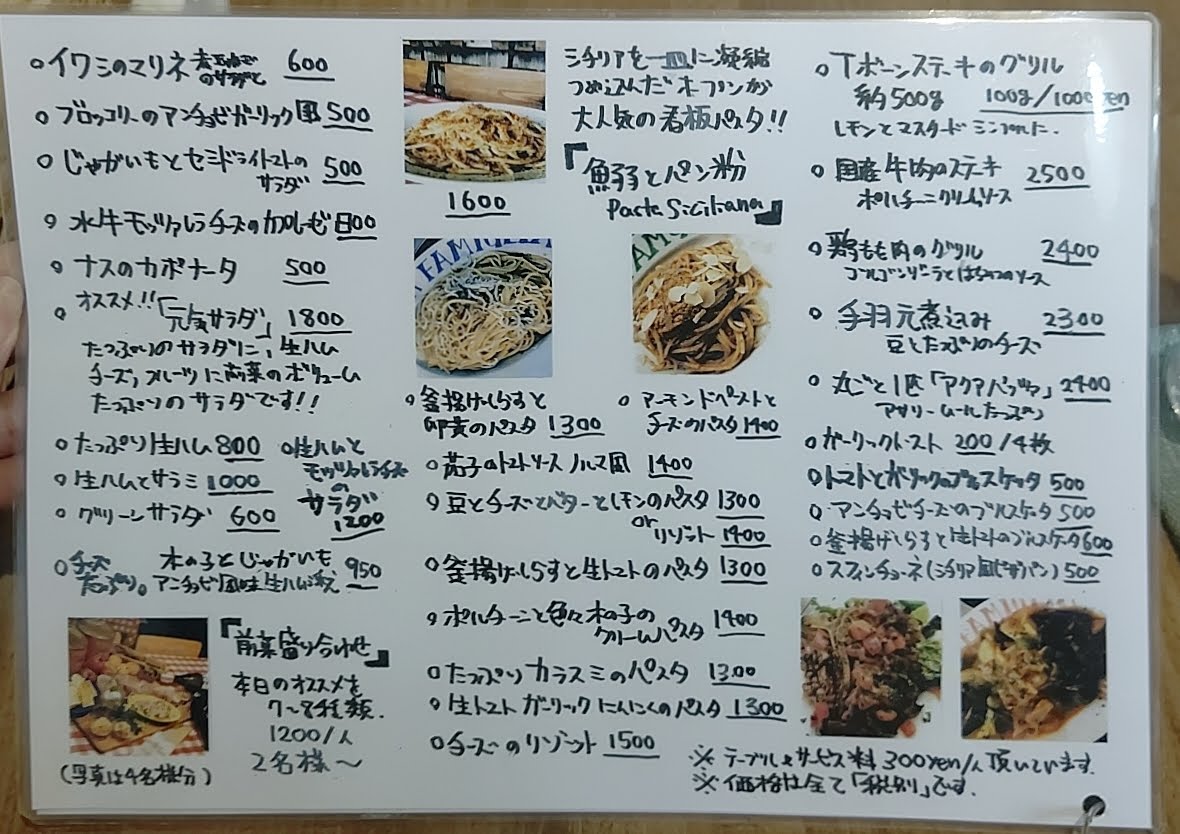 イワシのマリネ 600
のサラダと
ブロッコリーのアンチョビガーリック風 500
じゃがいもとセミドライトマトの
サラダ 500
水牛モッツァレラチーズのカプレーゼ 800
ナスのカポナータ 500
オススメ!!「元気サラダ」 1800
たっぷりのサラダに、生ハム
チーズ,フルーツに前菜のボリューム
たっぷりのサラダです!!
たっぷり生ハム 800
生ハムとサラミ 1000
グリーンサラダ 600
生ハムと
モッツァレラチーズ
の
サラダ
1200
チーズ
たっぷり。
木の子とじゃがいも
アンチョビ風味生ハム添え 950
『前菜盛り合わせ』
本日のオススメを
7〜8種類.
1200/人
2名様〜
(写真は4名様分)
1600
シチリアを一皿に凝縮
つめ込んだオープンから
大人気の看板パスタ!!
『魚介とパン粉
Pasta Siciliana』
FAMIGLIA
釜揚げしらすと
卵黄のパスタ 1300
アーモンドペーストと
チーズのパスタ 1400
茄子のトマトソース ノルマ風 1400
豆とチーズとバターとレモンのパスタ 1300
or
リゾット 1400
釜揚げしらすと生トマトのパスタ 1300
ポルチーニと色々木の子の
クリームパスタ 1400
たっぷりカラスミのパスタ 1300
生トマト ガーリック にんにくのパスタ 1300
チーズのリゾット 1500
Tボーンステーキのグリル
約500g 100g/1000yen
レモンとマスタード シンプルに.
国産牛肉のステーキ 2500
ポルチーニクリームソース
鶏もも肉のグリル 2400
ゴルゴンゾーラとはちみつのソース
手羽元煮込み 2300
豆とたっぷりのチーズ
丸ごと1匹「アクアパッツァ」 2400
アサリ ムールたっぷり
ガーリックトースト 200/4枚
トマトとガーリックのブルスケッタ 500
アンチョビチーズのブルスケッタ 500
釜揚げしらすと生トマトのブルスケッタ 600
スフィンチョーネ(シチリア風ピザパン) 500
※ テーブル&サービス料 300yen/人 頂いています.
※ 価格は全て「税別」です.